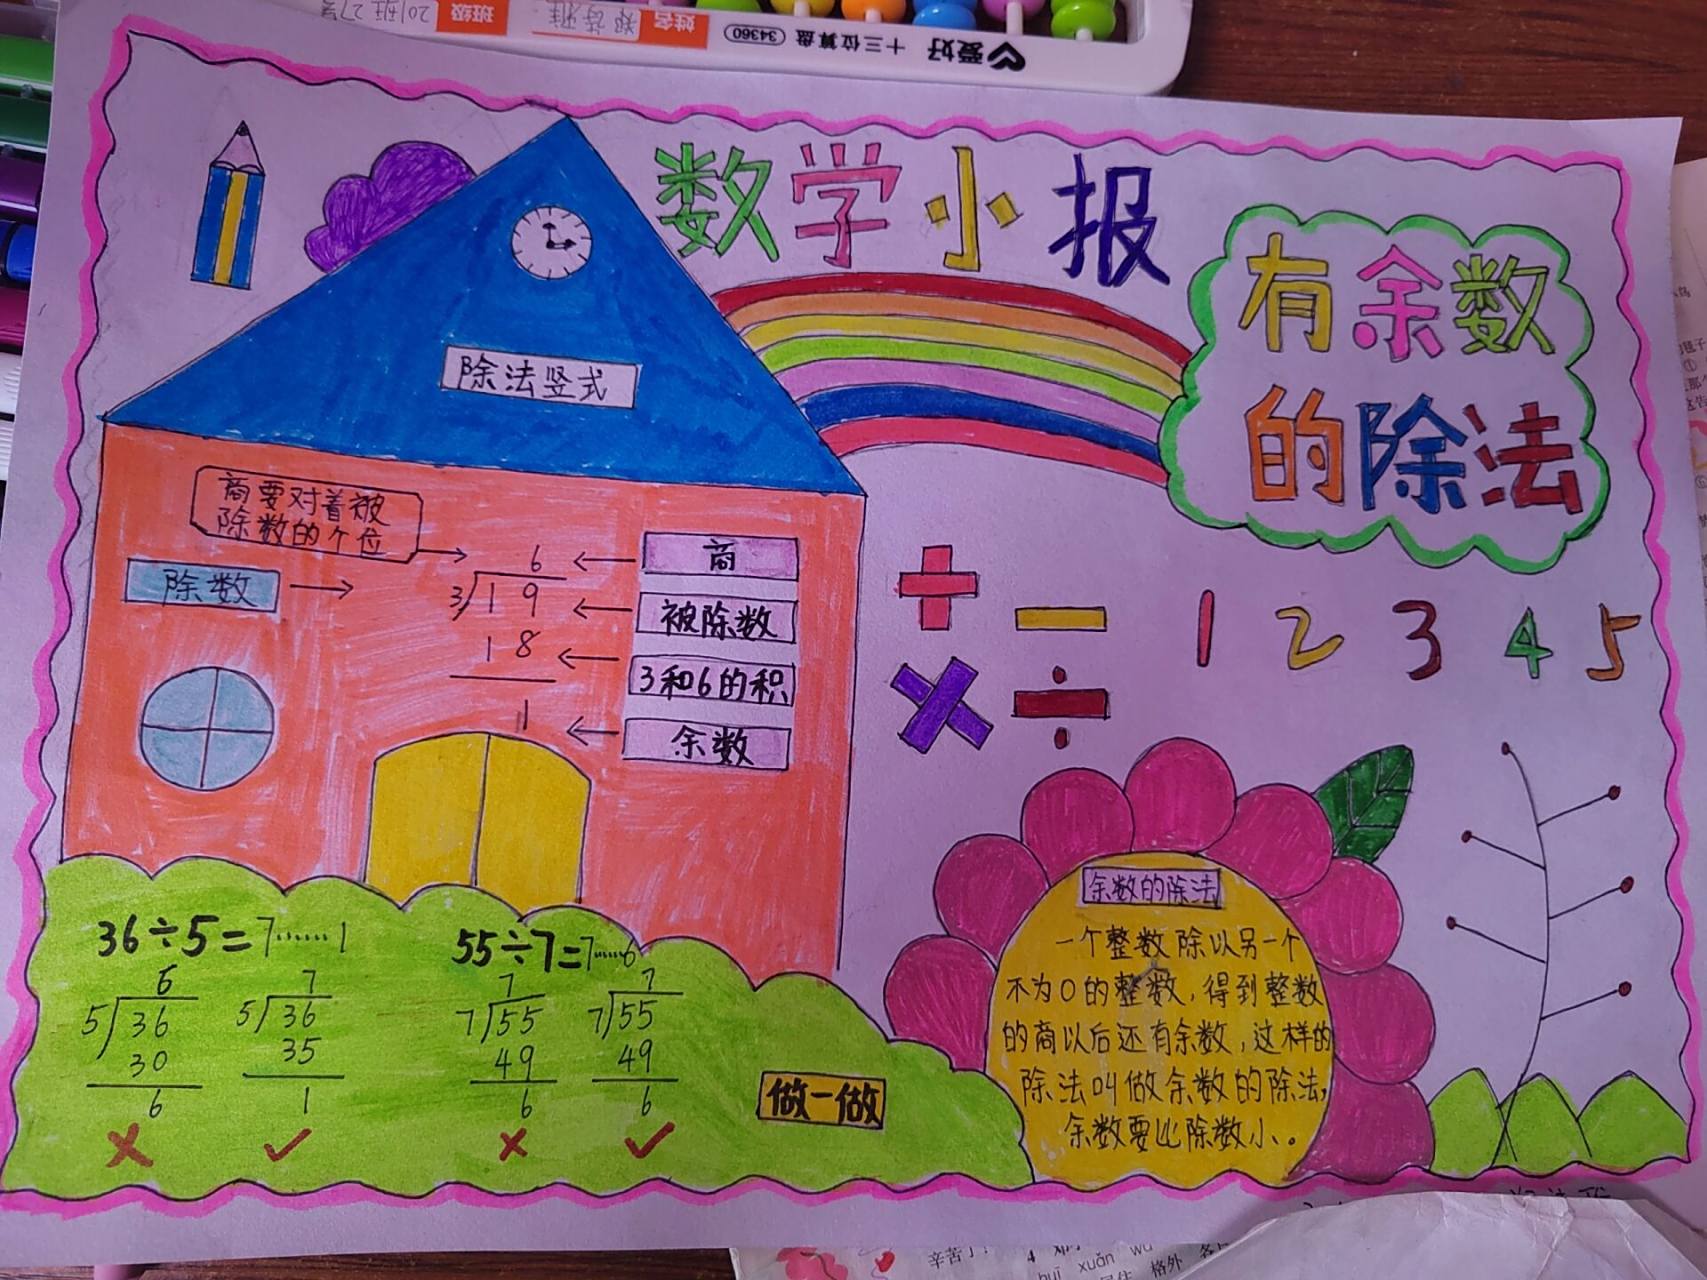 爱好
十三位算盘
34360
姓名
班级
201班27号
数学小报
有余数
的除法
除法竖式
商要对着被
除数的个位
除数
6
3 19
18
1
商
被除数
3和6的积
余数
1 2 3 4 5
36÷5=7……1
6
5 36
30
6
7
5 36
35
1
55÷7=7……6
7
7 55
49
6
7
7 55
49
6
做一做
余数的除法
一个整数除以另一个
不为0的整数,得到整数
的商以后还有余数,这样的
除法叫做余数的除法,
余数要比除数小。
辛苦了!
huī xuǎn wū
格外